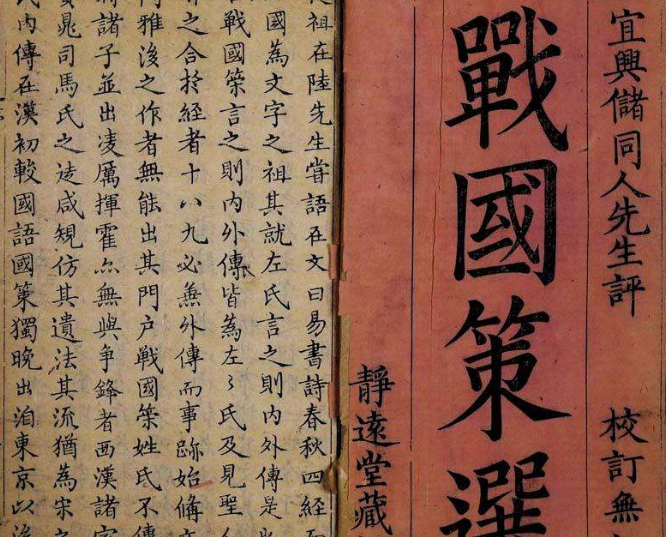 宜興儲同人先生評
校訂無
戰國策選
靜遠堂藏
祖在陸先生嘗語在文曰易書詩春秋四經
國為文字之祖其就左氏言之則內外傳是
戰國策言之則內外傳皆為左氏及見聖
之合於經者十八九必無外傳而事跡始備
雅後之作者無能出其門户戰國策姓氏不傳
諸子並出凌厲揮霍亦無與爭鋒者西漢諸
晁司馬氏之迭咸規仿其遺法其流猶為宋
內傳在漢初較國語國策獨晚出洎東京以